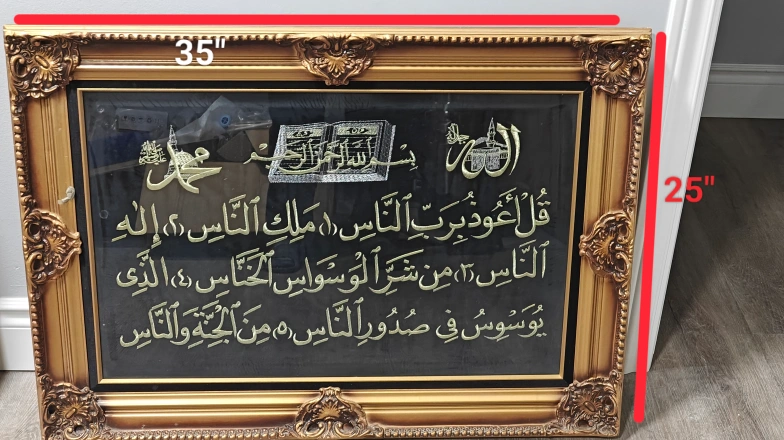 35"
25"
الله جل جلاله
بسم الله الرحمن الرحيم
محمد
قُلْ أَعُوذُ بِرَبِّ ٱلنَّاسِ (١) مَلِكِ ٱلنَّاسِ (٢) إِلَٰهِ
ٱلنَّاسِ (٣) مِن شَرِّ ٱلْوَسْوَاسِ ٱلْخَنَّاسِ (٤) ٱلَّذِى
يُوَسْوِسُ فِى صُدُورِ ٱلنَّاسِ (٥) مِنَ ٱلْجِنَّةِ وَٱلنَّاسِ